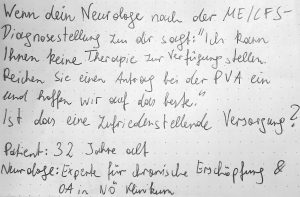 Wenn dein Neurologe nach der ME/CFS-
Diagnosestellung zu dir sagt: "Ich kann
Ihnen keine Therapie zur Verfügung stellen.
Reichen Sie einen Antrag bei der PVA ein
und hoffen wir auf das beste."
Ist das eine zufriedenstellende Versorgung?
Patient: 32 Jahre alt
Neurologe: Experte für chronische Erschöpfung &
OA in NÖ Klinikum